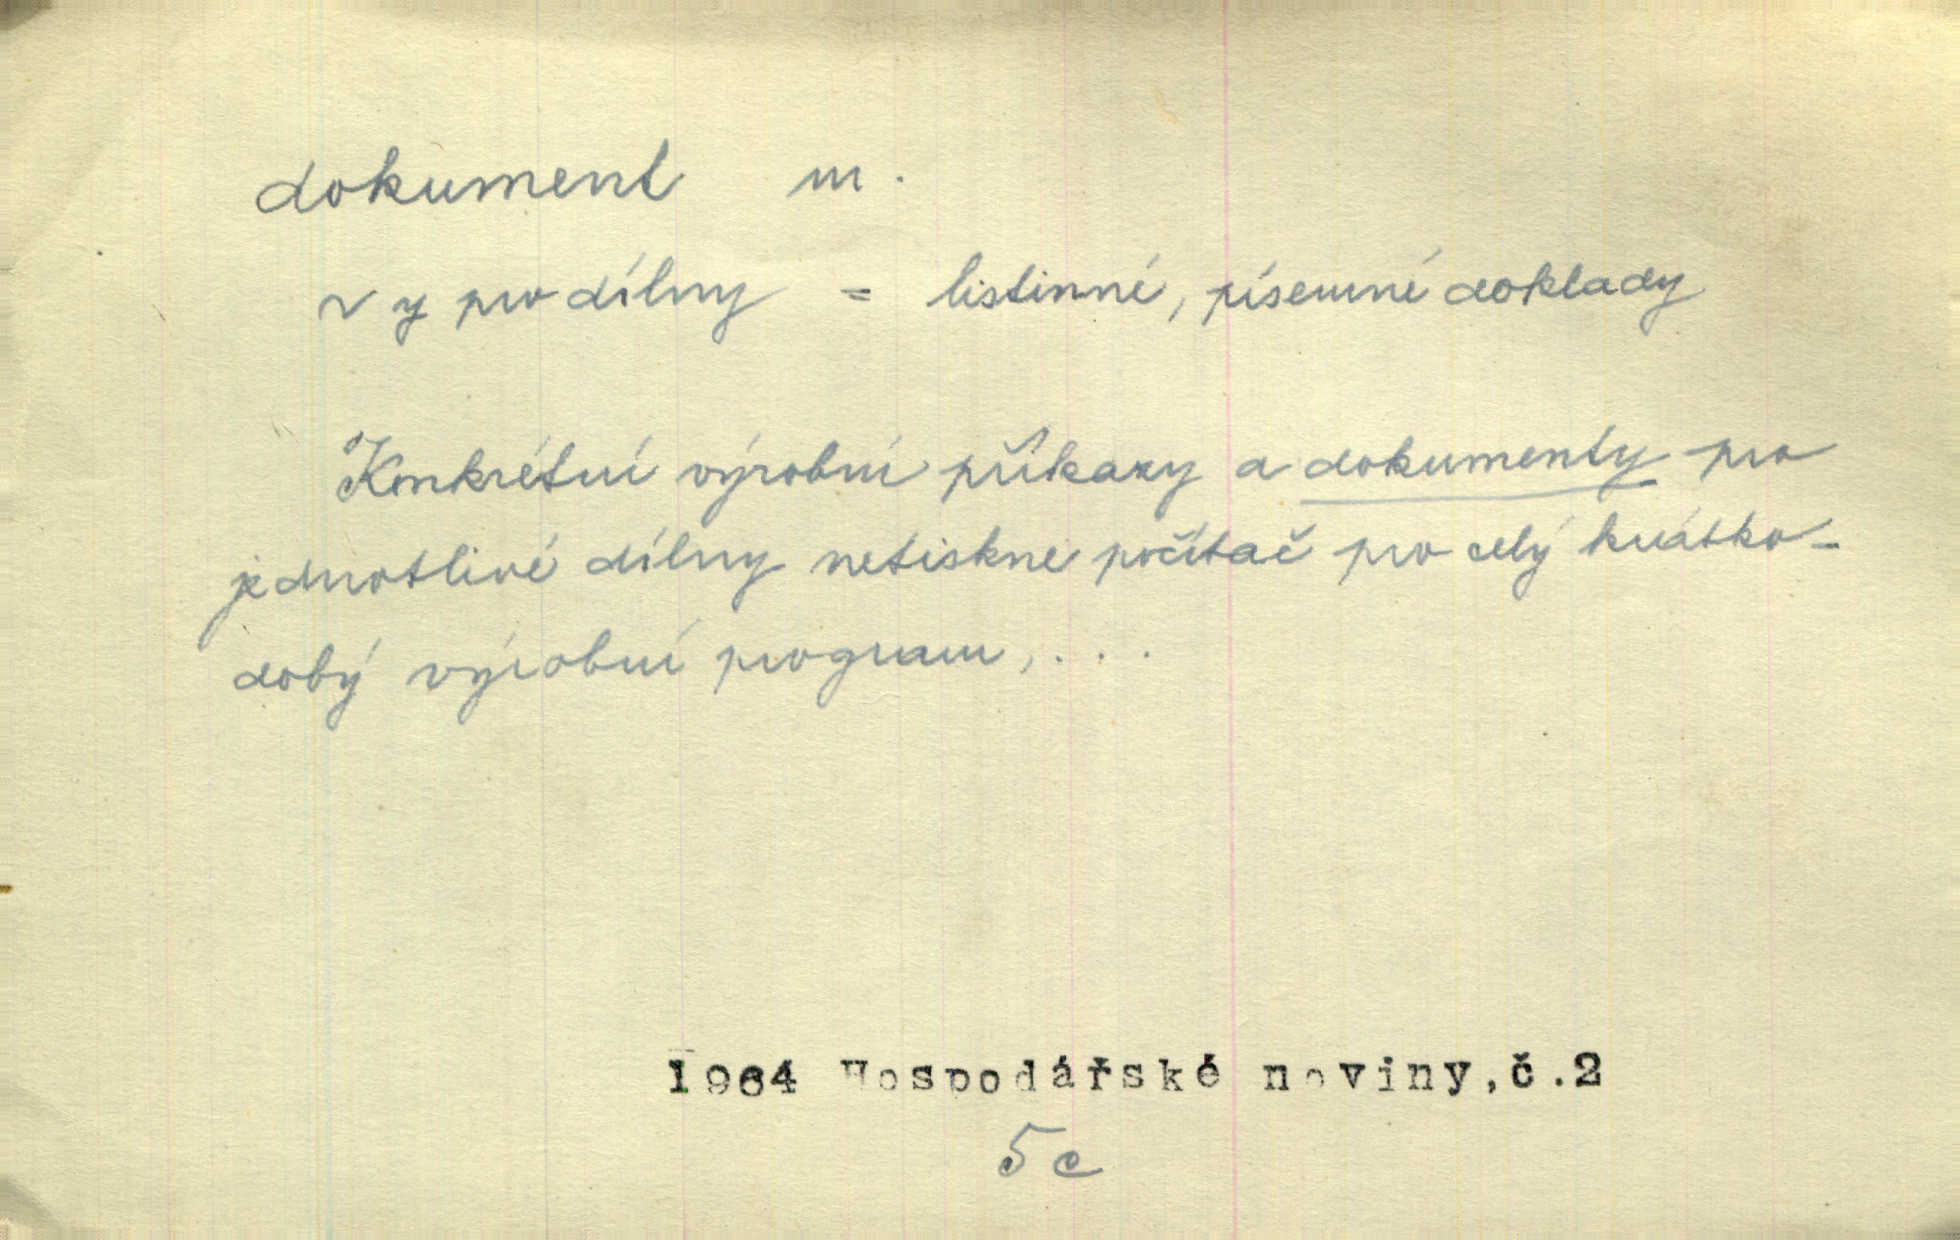 dokument m.
~ y pro dílny = listinné, písemné doklady
Konkrétní výrobní příkazy a dokumenty pro
jednotlivé dílny netiskne počítač pro celý krátko-
dobý výrobní program, . . .
1964 Hospodářské noviny,č.2
5c